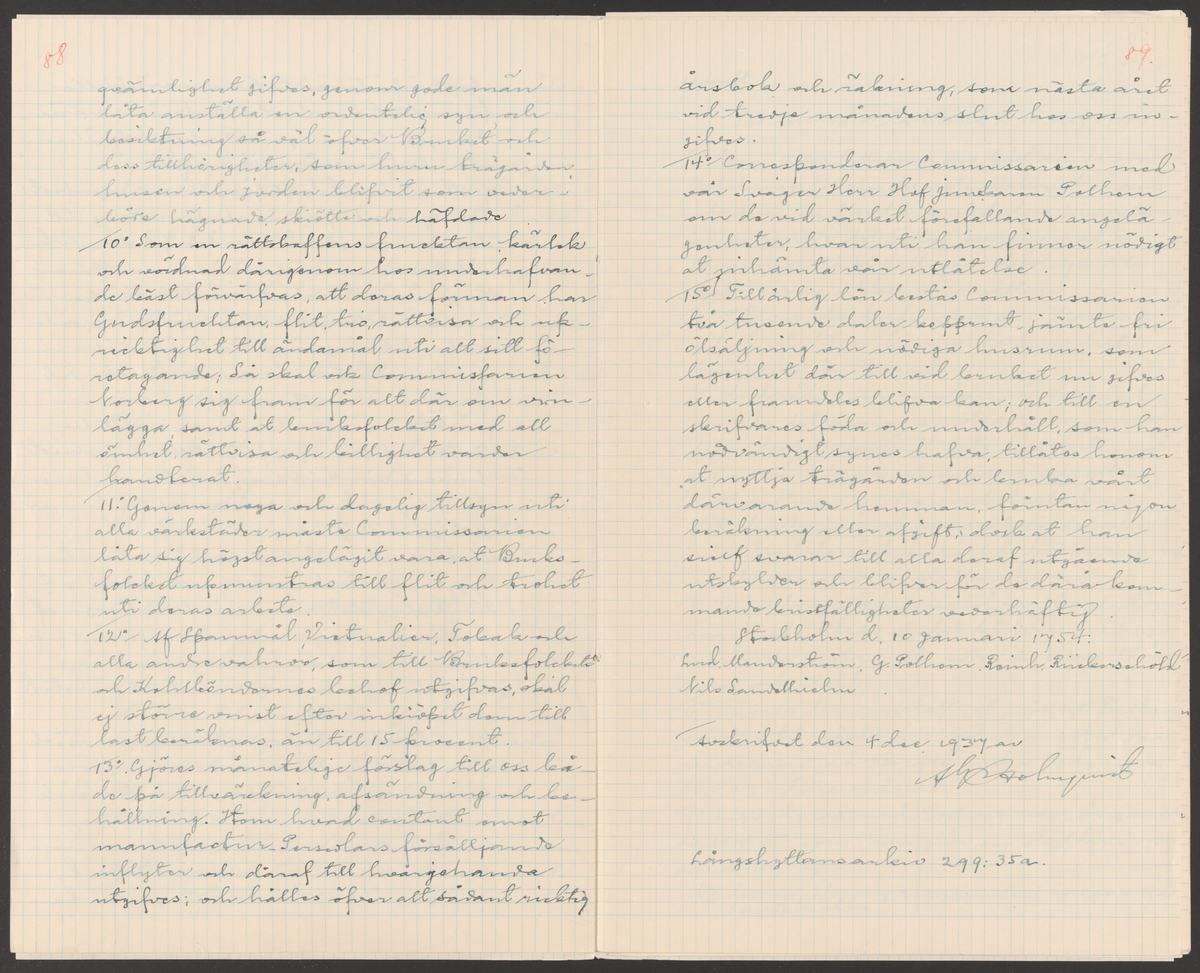 88
qvämlighet gifves, genom gode män
låta anställa en ordentelig syn och
besiktning så väl öfver Bruket och
dess tillhörigheter, som huru trägården
husen och jorden blifvit som veder-
böre hägnade, skiötte och häfdade
10° Som en rättskaffens fruktan, kärlek
och vördnad därigenom hos underhafvan-
de bäst förvärfvas, att deras förman har
Gudsfruchtan, flit, tro, rättvisa och up-
richtighet till ändamål uti alt sitt fö-
retagande; Så skal ock Commissarien
Norberg sig fram för alt där om vin-
lägga, samt at bruksfolcket med all
ömhet, rättvisa och billighet varder
handterat.
11° Genom noga och dagelig tillsyn uti
alla värkstäder måste Commissarien
låta sig högst angelägit vara, at Bruks-
folcket upmuntras till flit och trohet
uti deras arbete.
12° Af Spanmål, Victualier, Tobak och
alla andre vahror, som till Bruksfolckets
och Kohlböndernes behof utgifvas, skal
ej större vinst efter inkiöpet dem till
last beräknas, än till 15 procent.
13° Gjöres månatelige förslag till oss bå-
de på tillvärckning, afsändning och be-
hållning. Item hvad contant emot
manufactur-Persedlars försälljande
inflyter och däraf till hvarjehanda
utgifves; och hålles öfver alt sådant ricktig
89.
årsbok och räkning, som nästa året
vid tredje månadens slut hos oss in-
gifves.
14° Corresponderar Commissarien med
vår Svåger Herr Hof junkaren Polhem
om de vid värket förefallande angelä-
genheter, hvar uti han finner nödigt
at inhämta vår utlåtelse.
15° Till årlig lön bestås Commissarien
två tusende daler kopprmt, jämte fri
ölsäljning och nödiga husrum, som
lägenhet där till vid bruket nu gifves
eller framdeles blifva kan; och till en
skrifvares föda och underhåll, som han
nödvändigt synes hafva, tillåtes honom
at nyttja trägården och bruka vårt
därvarande hemman, förutan någon
beräkning eller afgift; dock at han
sielf svarar till alla deraf utgående
utskylder och blifver för de dära kom-
mande bristfälligheter vederhäftig.
Stockholm d. 10 Januari 1754.
Lud. Manderström. G. Polhem. Reinh. Rückerschöld
Nils Sandelhielm
Avskrifvet den 4 dec 1937 av
Holmquist
Långshyttans arkiv 299: 35a.